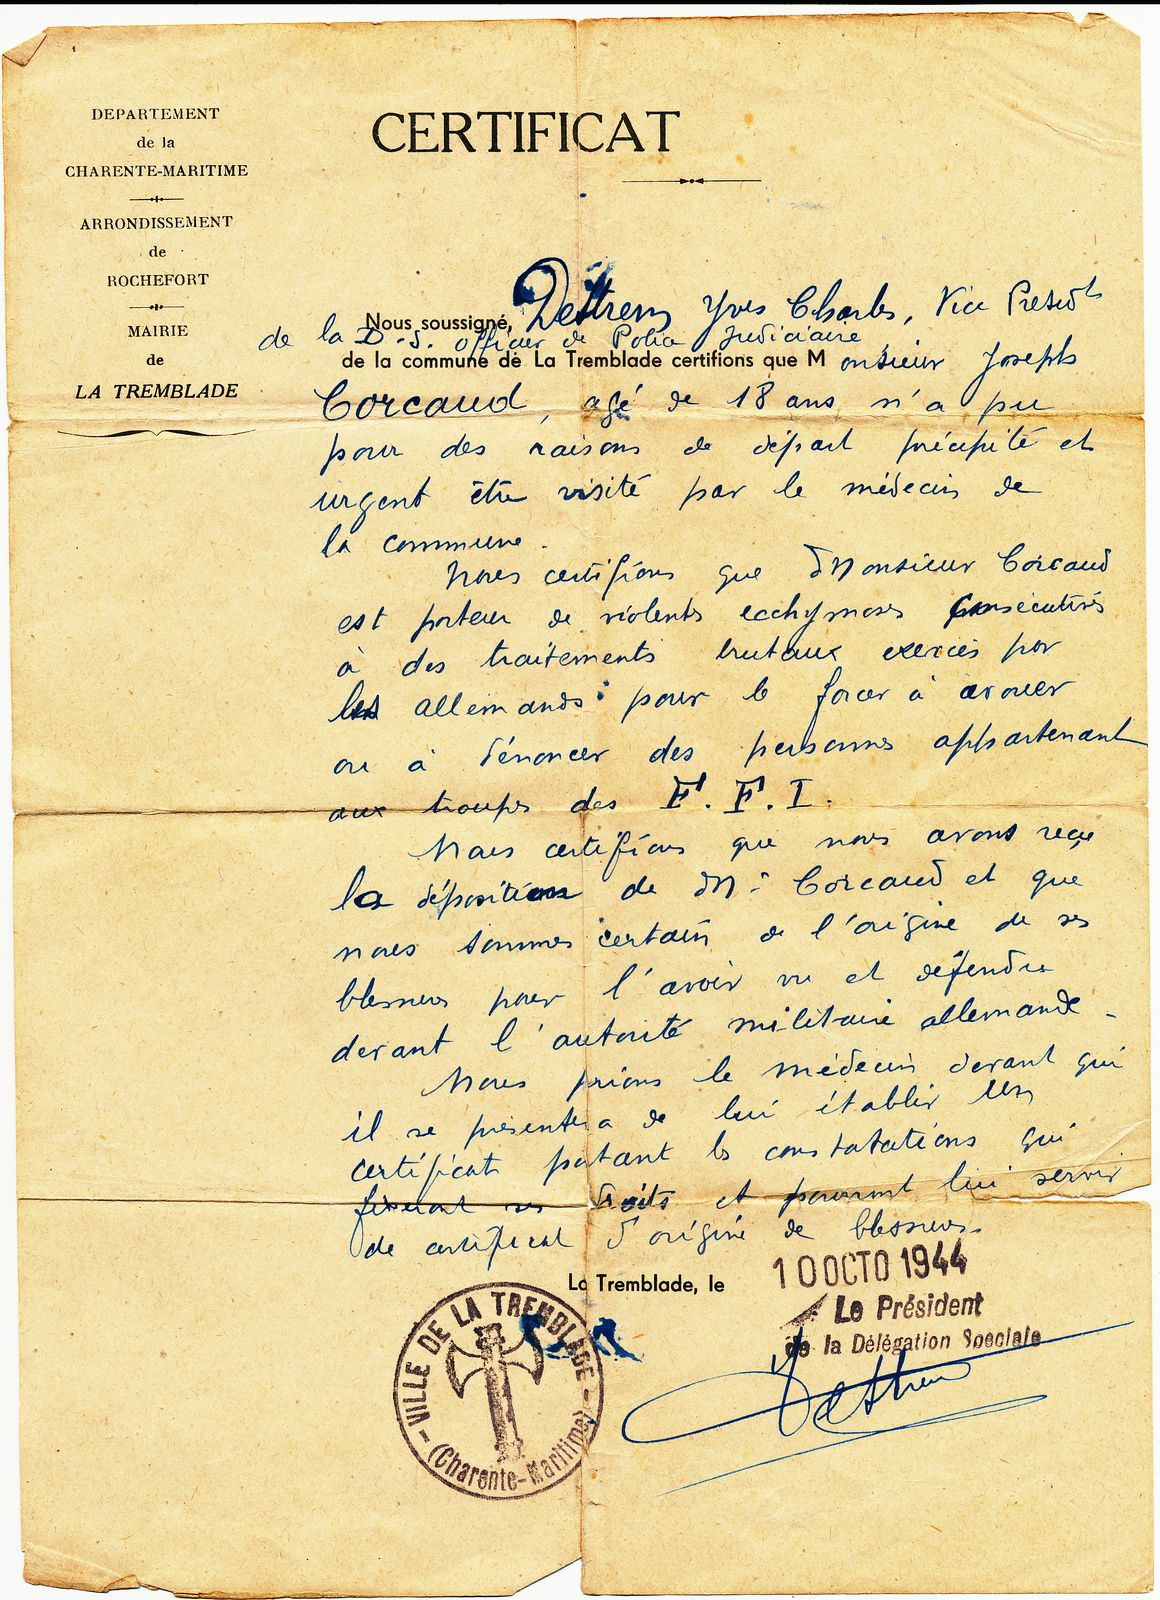 DEPARTEMENT
de la
CHARENTE-MARITIME
ARRONDISSEMENT
de
ROCHEFORT
MAIRIE
de
LA TREMBLADE
CERTIFICAT
Nous soussigné, Destrem Yves Charles, Vice Présidt
de la D.S. officier de Police Judiciaire
de la commune de La Tremblade certifions que Monsieur Joseph
Corcaud, agé de 18 ans n'a pu
pour des raisons de départ précipité et
urgent être visité par le médecin de
la commune.
Nous certifions que Monsieur Corcaud
est porteur de violents ecchymoses consécutives
à des traitements brutaux exercés par
les allemands pour le forcer à avouer
ou à dénoncer des personnes appartenant
aux troupes des F.F.I.
Nous certifions que nous avons reçu
la déposition de M. Corcaud et que
nous sommes certain de l'origine de ses
blessures pour l'avoir vu et défendu
devant l'autorité militaire allemande.
Nous prions le médecin devant qui
il se présentera de lui établir un
certificat portant les constatations qui
fixeront ses droits et pourront lui servir
de certificat d'origine de blessures.
La Tremblade, le 10 OCTO 1944
Le Président
de la Délégation Speciale
Destrem
VILLE DE LA TREMBLADE
(Charente-Maritime)